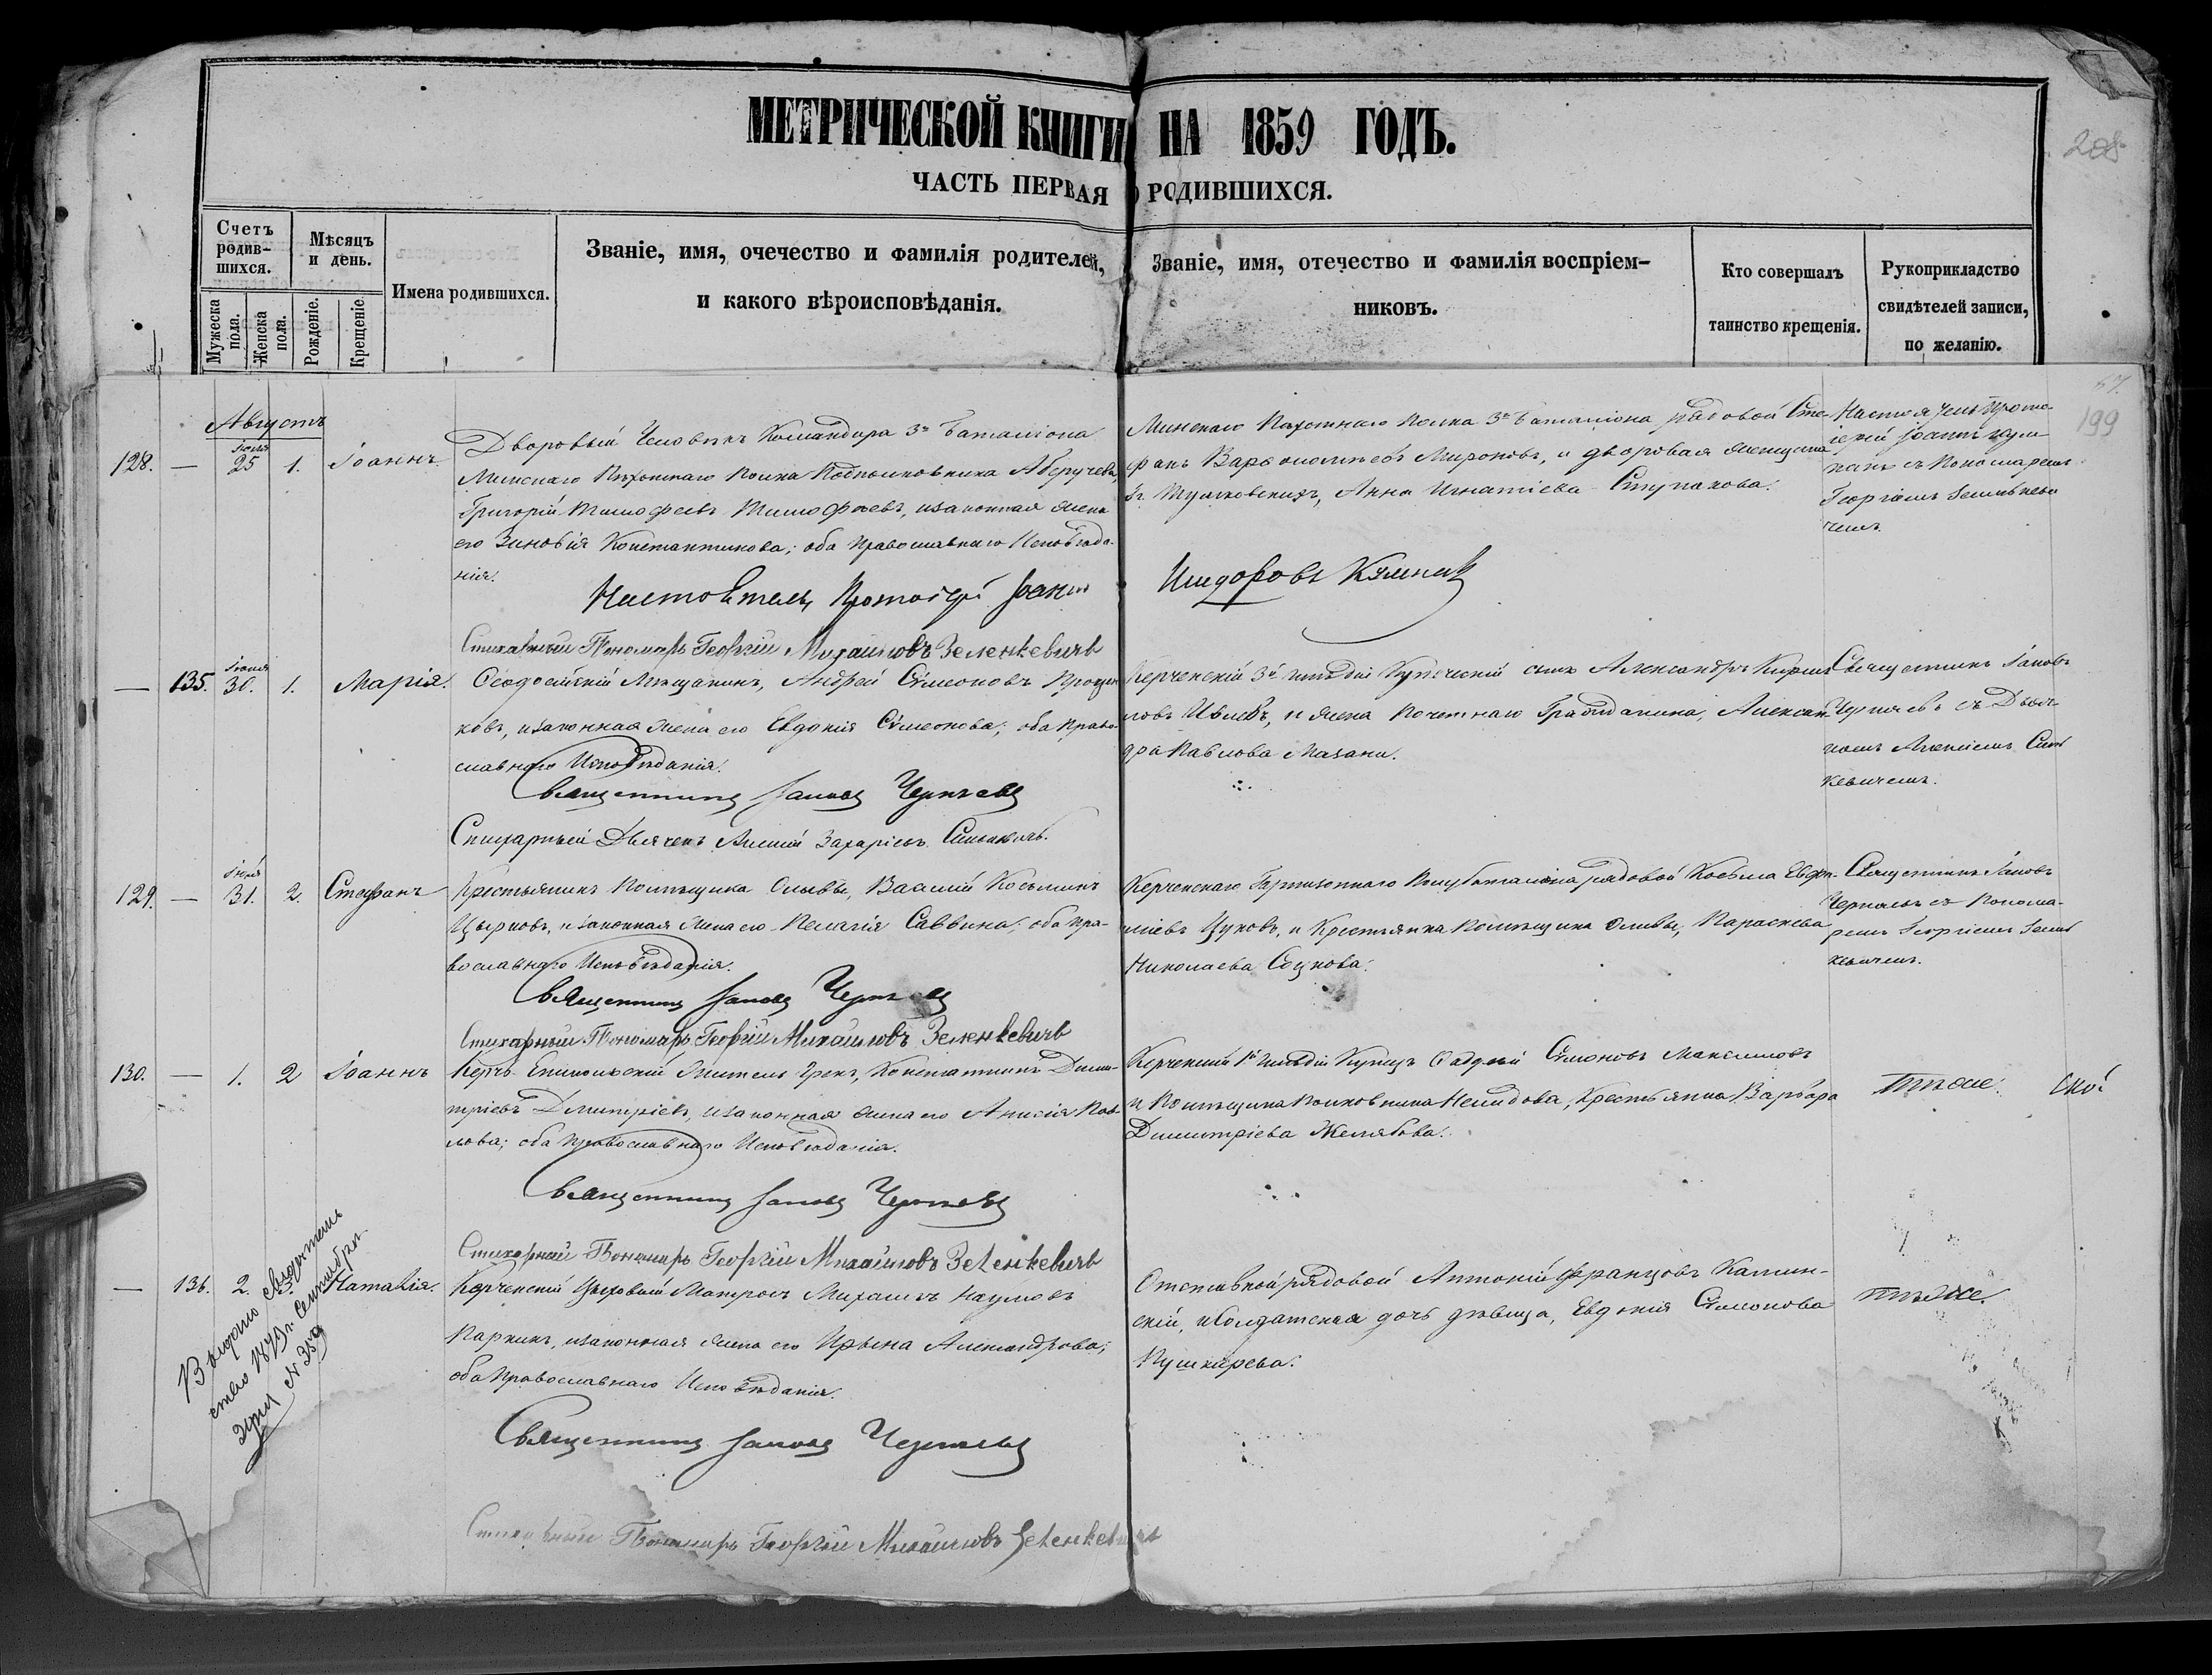 МЕТРИЧЕСКОЙ КНИГИ НА 1859 ГОДЪ.
208
ЧАСТЬ ПЕРВАЯ О РОДИВШИХСЯ.
Счетъ
родив-
шихся.
Мужеска
пола.
Женска
пола.
Мѣсяцъ
и день.
Рожденіе.
Крещеніе.
Имена родившихся.
Званіе, имя, очечество и фамилія родителей,
и какого вѣроисповѣданія.
Званіе, имя, отечество и фамилія воспріем-
никовъ.
Кто совершалъ
таинство крещенія.
Рукоприкладство
свидѣтелей записи,
по желанію.
199
Августъ
128. — Іюля 25 1. Іоаннъ.
Дворовый Человѣкъ Командира 3го Баталіона
Минскаго Пѣхотнаго Полка Подполковника
Григорій Тимофеевъ Тимофѣевъ, и законная жена
его Зиновія Константинова; оба Православнаго Исповѣда-
нія.
Минскаго Пѣхотнаго Полка 3го Баталіона рядовой Сте-
фанъ Варфоломѣевъ Мироновъ, и дворовая женщина
Анна Игнатіева Ступакова.
Настоятель Прото-
іерей Іоаннъ
съ Пономаремъ
Георгіемъ Зеленкеви-
чемъ.
Настоятель Протоіерей Іоаннъ
Стихарный Пономарь Георгій Михайловъ Зеленкевичъ
— 135. Іюля 30. 1. Марія.
Ѳеодосійскій Мѣщанинъ, Андрей Сѵмеоновъ
ковъ, и законная жена его Евдокія Сѵмеонова; оба Право-
славнаго Исповѣданія.
Керченскій 3й гильдіи Купеческій сынъ Александръ
ловъ и жена Почетнаго Гражданина, Алексан-
дра Павлова Мазани.
Священникъ Іаковъ
Черняевъ съ Дьяч-
комъ Алексіемъ
кевичемъ.
Священникъ Іаковъ Черняевъ
Стихарный Дьячекъ Алексій Захаріевъ
129. — Іюля 31. 2. Стефанъ
Крестьянинъ Помѣщика Оливы, Василій Косьминъ
и законная жена его Пелагія Саввина; оба Пра-
вославнаго Исповѣданія.
Керченскаго Гарнизоннаго Полубаталіона рядовой Косьма Евфи-
міевъ Цуковъ, и Крестьянка Помѣщика Оливы, Параскева
Николаева
Священникъ Іаковъ
Черняевъ съ Понома-
ремъ Георгіемъ Зелен-
кевичемъ.
Священникъ Іаковъ Черняевъ
Стихарный Пономарь Георгій Михайловъ Зеленкевичъ
130. — 1. 2 Іоаннъ
Керчь-Еникольскій житель Грекъ, Константинъ Дими-
тріевъ Димитріевъ, и законная жена его Анисія Пав-
лова; оба Православнаго Исповѣданія.
Керченскій 1й гильдіи Купецъ Сѵмоновъ Максимовъ
и Помѣщика Полковника Нелидова, Крестьянка Варвара
Димитріева Желябова.
Тѣже.
Священникъ Іаковъ Черняевъ
Стихарный Пономарь Георгій Михайловъ Зеленкевичъ
— 136. 2. 3. Наталія.
Керченскій Цеховый Матросъ Михаилъ Наумовъ
Паркинъ, и законная жена его Ирина Александрова;
оба Православнаго Исповѣданія.
Отставной рядовой Антоній Францовъ Калин-
скій, и Солдатская дочь дѣвица, Евдокія Сѵмеонова
Пушкарева.
тѣже.
Выдано свидѣтель
ство 1879 г. Сентября
№ 359
Священникъ Іаковъ Черняевъ
Стихарный Пономарь Георгій Михайловъ Зеленкевичъ